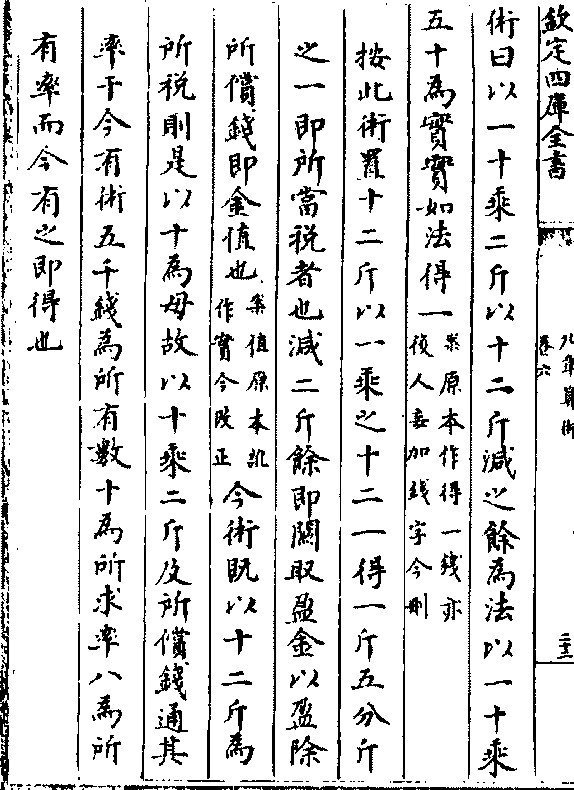 欽定四庫全書
九章算術
卷六
二十三
術曰以一十乘二斤以十二斤減之餘為法以一十乘
五十為實實如法得一案原本作得一錢亦後人妄加錢字今刪
按此術置十二斤以一乘之十二一得一斤五分斤
之一即所當税者也減二斤餘即關取盈金以盈除
所償錢即金值也案值原本訛作實今改正今術既以十二斤為
所税則是以十為母故以十乘二斤及所償錢通其
率于今有術五千錢為所有數十為所求率八為所
有率而今有之即得也